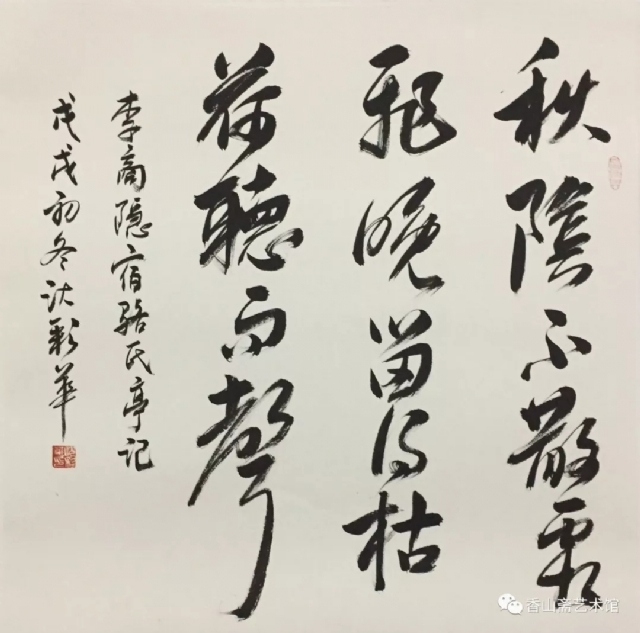 秋陰不散霜
飛晚留得枯
荷聽雨聲
李商隱宿骆氏亭记
戊戌初冬沃彩華
香山斋艺术馆